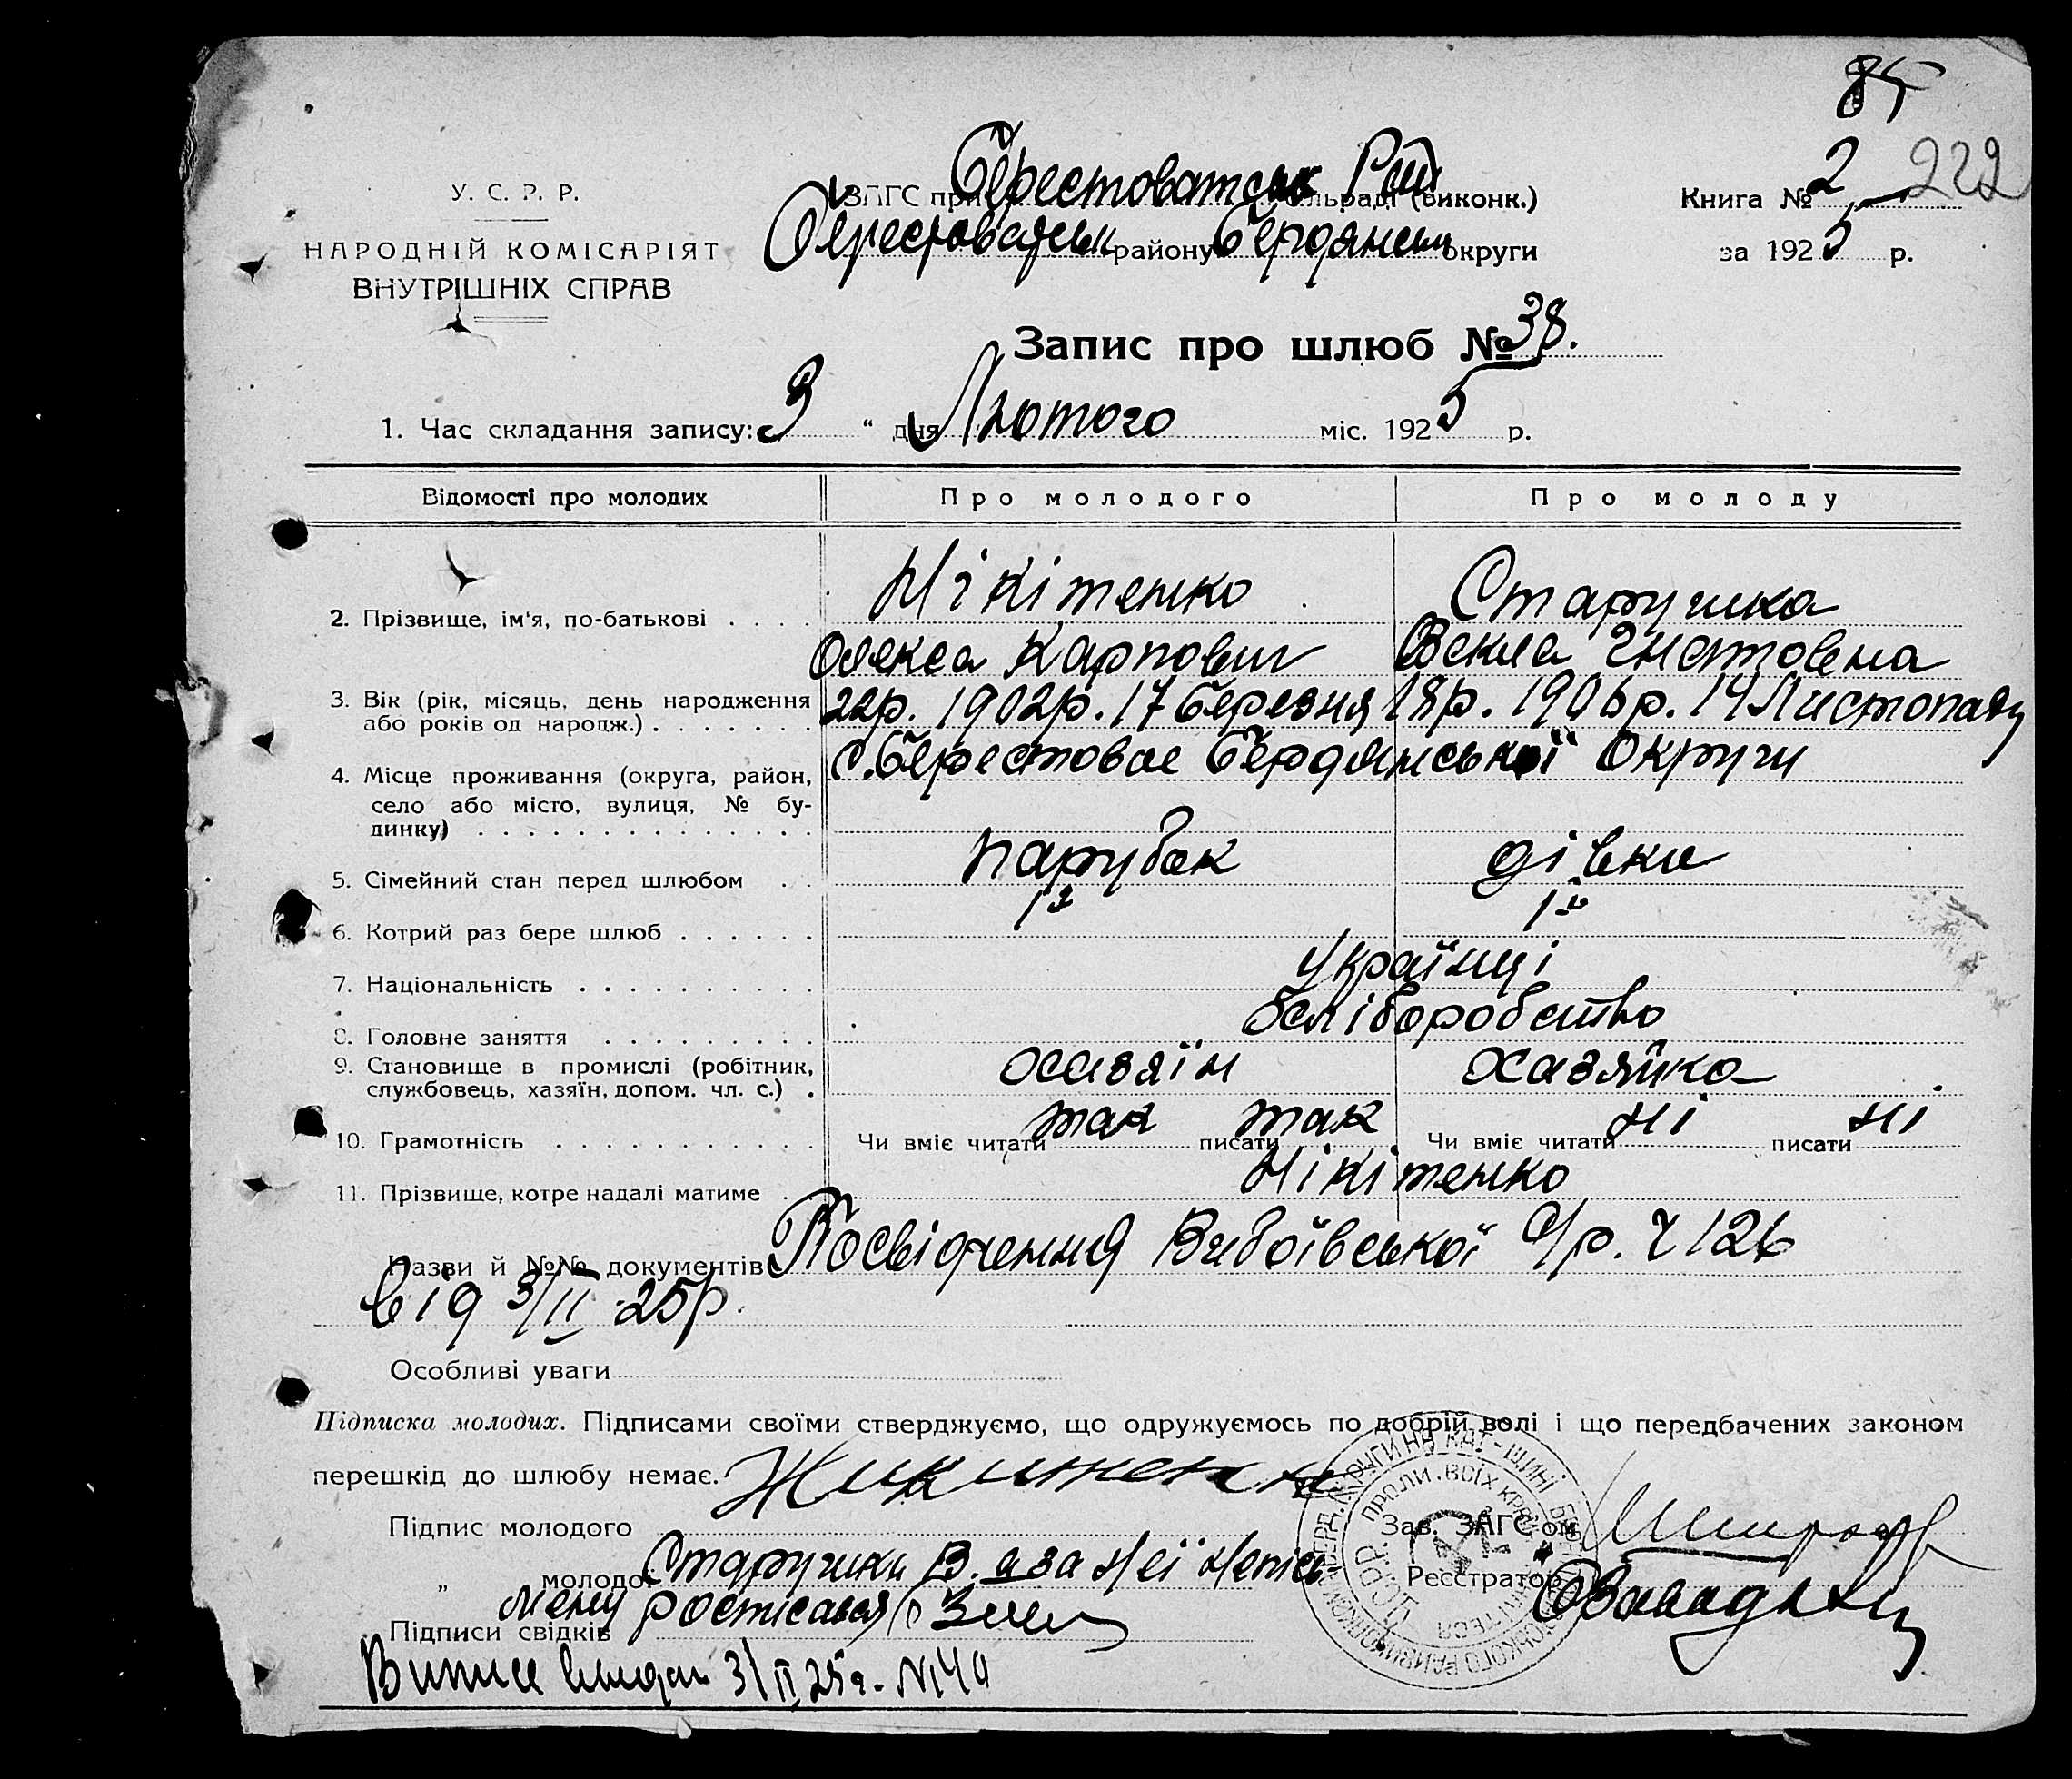 85
222
У. С. Р. Р.
НАРОДНІЙ КОМІСАРІЯТ
ВНУТРІШНІХ СПРАВ
ЗАГС при Берестоватськ (виконк.)
Берестоватськ району Бердянськ округи
Книга № 2
за 1925 р.
Запис про шлюб № 38.
1. Час складання запису: 3 " дня Лютого міс. 1925 р.
Відомості про молодих Про молодого Про молоду
2. Прізвище, ім'я, по-батькові . . . . Нікітенко Старушка
Олекса Карпович Векла Гнатовена
3. Вік (рік, місяць, день народження 22р. 1902р. 17 березня 18р. 1906р. 14 Листопаду
або років од народж.) . . . . . . .
4. Місце проживання (округа, район, с. Берестовое Бердянської Округи
село або місто, вулиця, № бу-
динку) . . . . . . . . . . . . . .
5. Сімейний стан перед шлюбом . . парубок дівка
6. Котрий раз бере шлюб . . . . . . 1й 1й
7. Національність . . . . . . . . . . Українці
8. Головне заняття . . . . . . . . . хліборобство
9. Становище в промислі (робітник, хазяїн хазяйка
службовець, хазяїн, допом. чл. с.) .
10. Грамотність . . . . . . . . . . . Чи вміє читати так писати так Чи вміє читати ні писати ні
11. Прізвище, котре надалі матиме . . Нікітенко
Назви й №№ документів Посвідчення Вибоївської с/р. Ч 126
від 3/II 25р.
Особливі уваги
Підписка молодих. Підписами своїми стверджуємо, що одружуємось по добрій волі і що передбачених законом
перешкід до шлюбу немає.
Підпис молодого Зав. ЗАГС-ом
" молодої Старушки В. а за неї непись Реєстратор
менну
Підписи свідків
Випис видан 3/II 25г. №